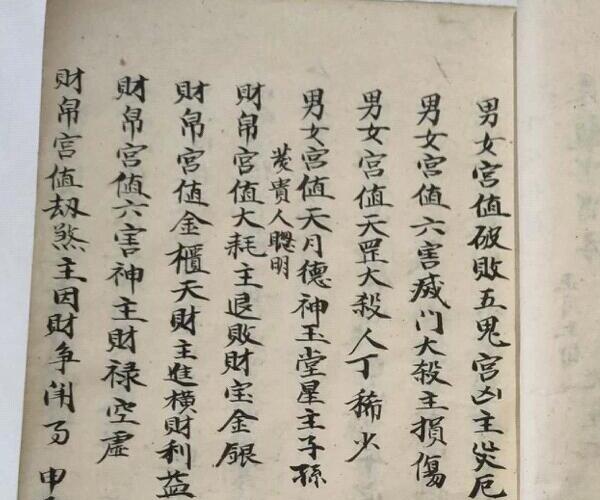 男女宮值破敗五鬼宮凶主災厄
男女宮值六害滅门大殺主損傷
男女宮值天罡大殺人丁稀少
男女宮值天月德神玉堂星主子孫
發貴人聰明
財帛宮值大耗主退敗財宝金銀
財帛宮值金櫃天財主進橫財利益
財帛宮值六害神主財禄空虛
財帛宮值刼煞主因財爭闹 申